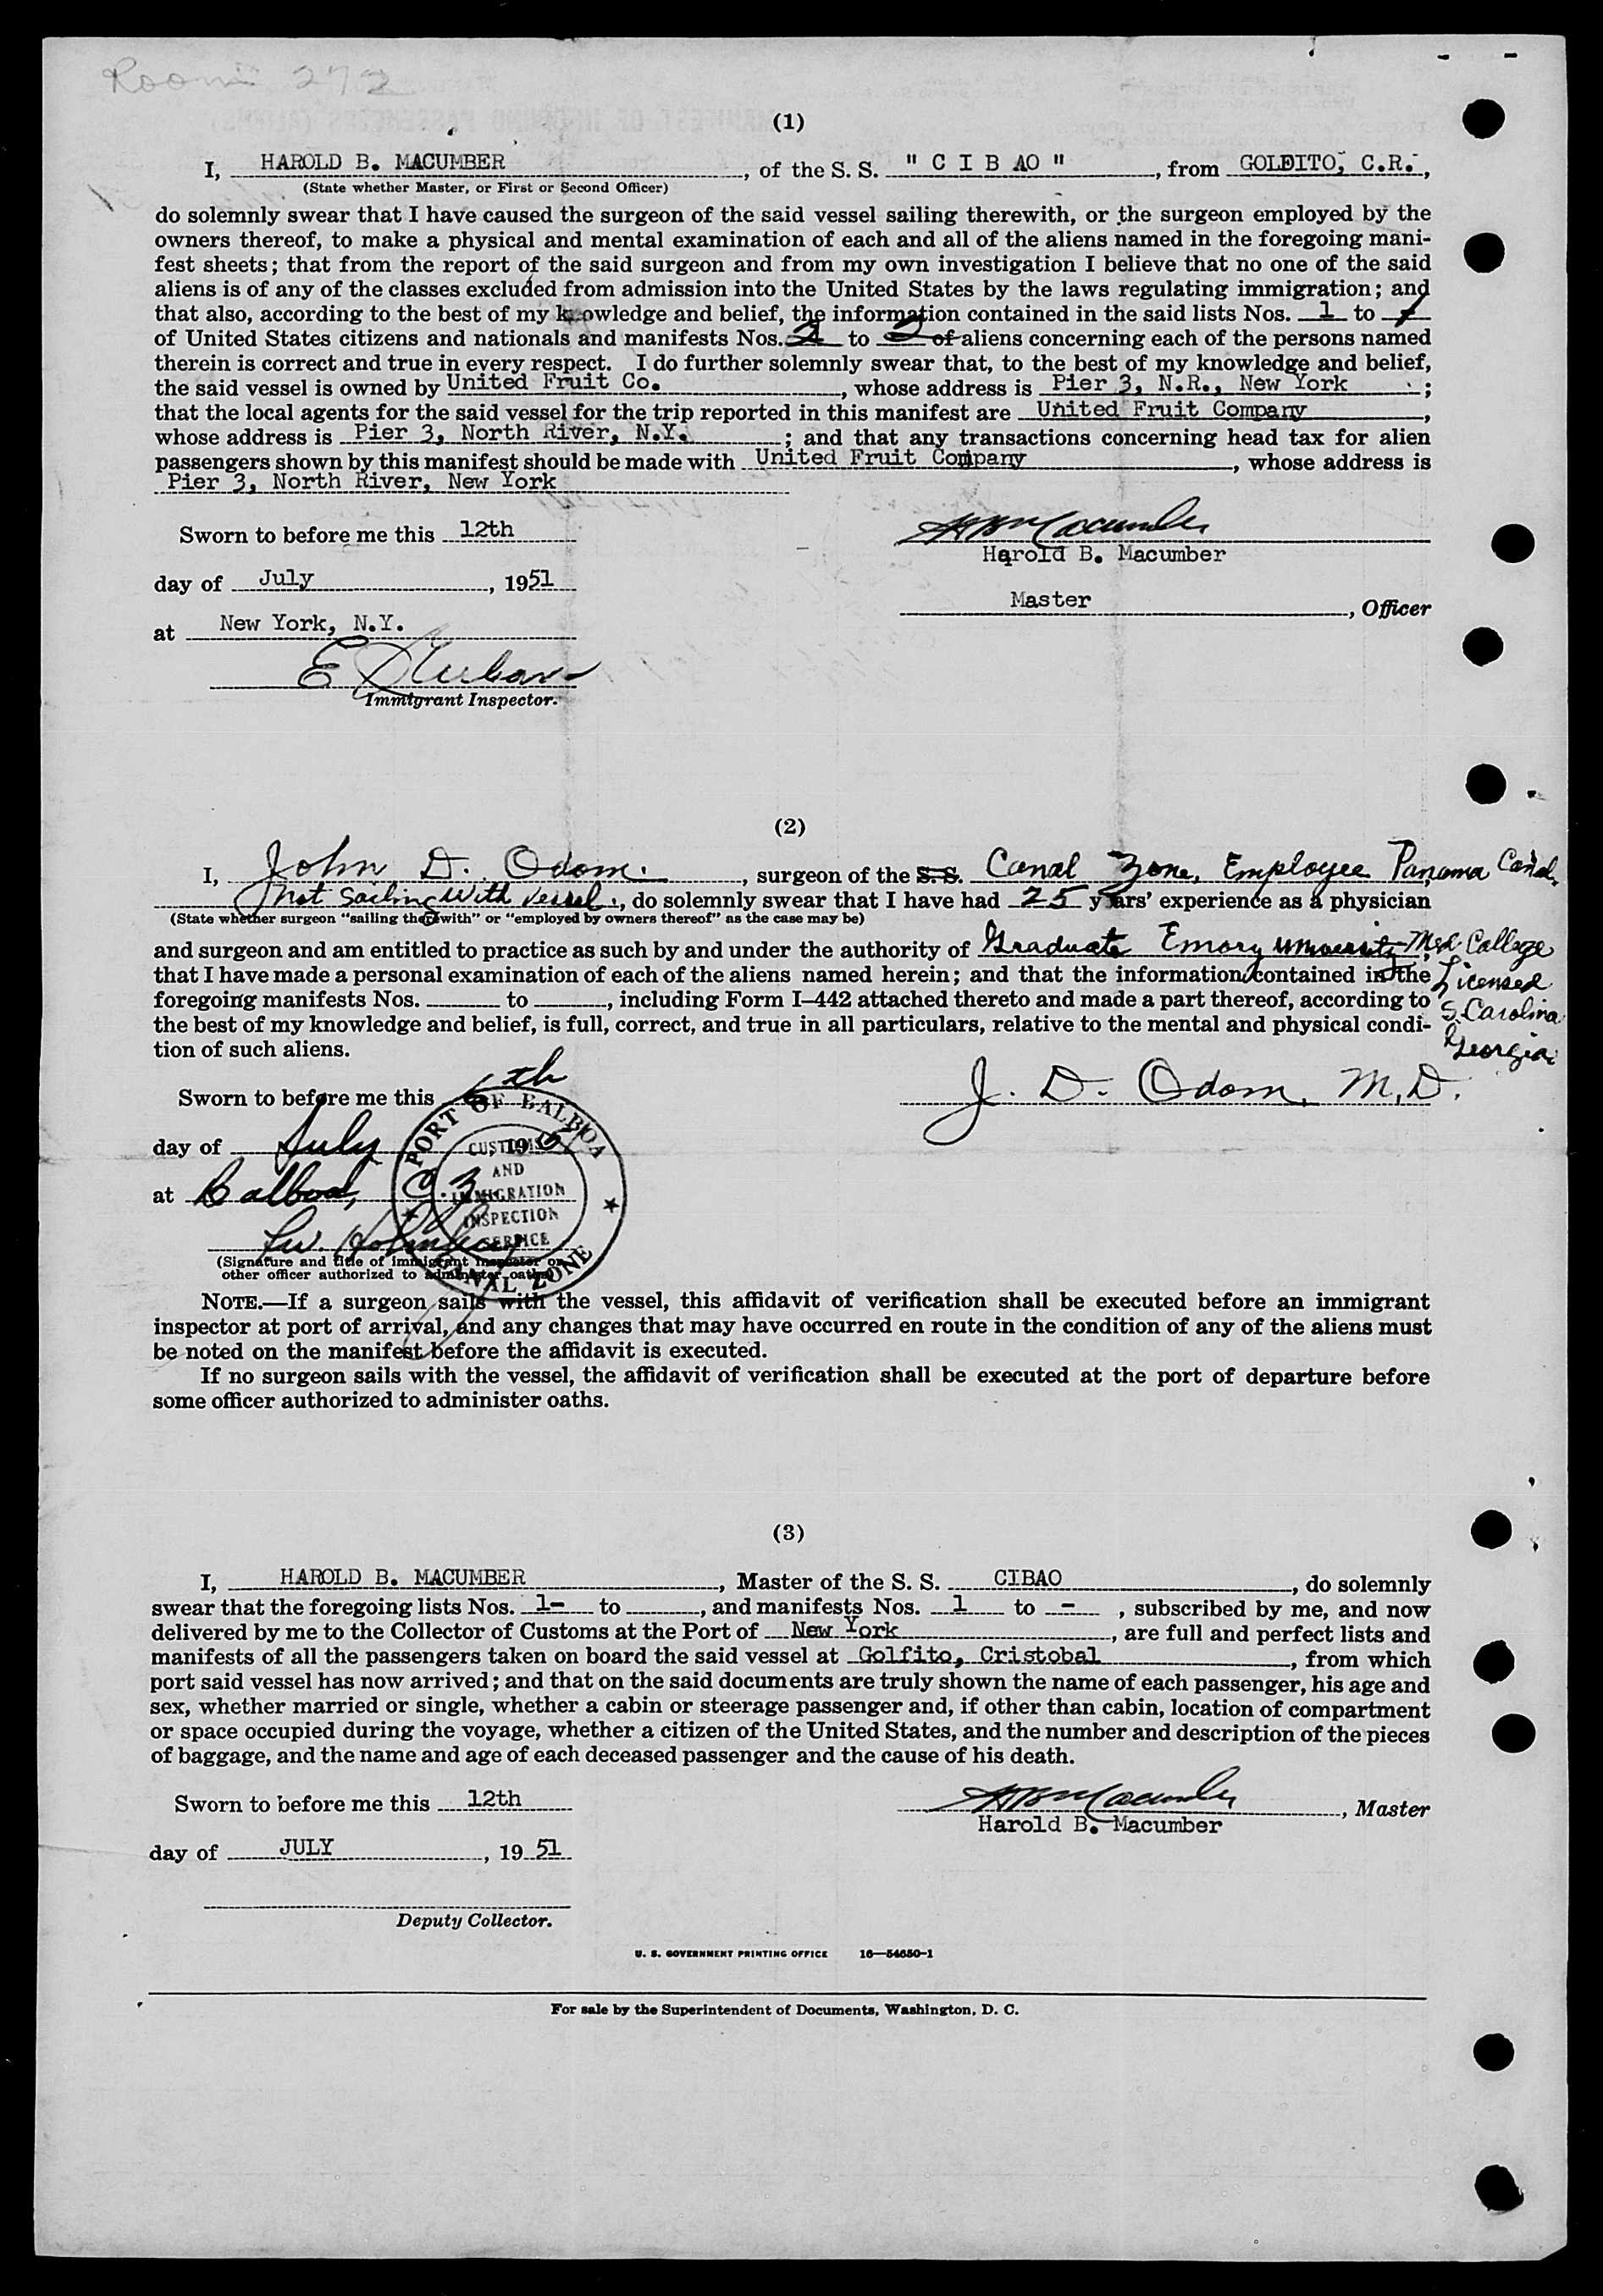 Room 272
(1)
I, HAROLD B. MACUMBER, of the S. S. " C I B AO ", from GOLDITO, C.R.,
(State whether Master, or First or Second Officer)
do solemnly swear that I have caused the surgeon of the said vessel sailing therewith, or the surgeon employed by the
owners thereof, to make a physical and mental examination of each and all of the aliens named in the foregoing mani-
fest sheets; that from the report of the said surgeon and from my own investigation I believe that no one of the said
aliens is of any of the classes excluded from admission into the United States by the laws regulating immigration; and
that also, according to the best of my knowledge and belief, the information contained in the said lists Nos. 1 to 1
of United States citizens and nationals and manifests Nos. 2 to 2 of aliens concerning each of the persons named
therein is correct and true in every respect. I do further solemnly swear that, to the best of my knowledge and belief,
the said vessel is owned by United Fruit Co., whose address is Pier 3, N.R., New York;
that the local agents for the said vessel for the trip reported in this manifest are United Fruit Company,
whose address is Pier 3, North River, N.Y.; and that any transactions concerning head tax for alien
passengers shown by this manifest should be made with United Fruit Company, whose address is
Pier 3, North River, New York
Sworn to before me this 12th
HBMacumber
Harold B. Macumber
day of July, 1951
Master, Officer
at New York, N.Y.
Immigrant Inspector.
(2)
I, John D. Odom, surgeon of the S. S. Canal Zone, Employee Panama Canal,
Not Sailing with vessel, do solemnly swear that I have had 25 years' experience as a physician
(State whether surgeon "sailing therewith" or "employed by owners thereof" as the case may be)
and surgeon and am entitled to practice as such by and under the authority of Graduate Emory University Med College
that I have made a personal examination of each of the aliens named herein; and that the information contained in the
Licensed
foregoing manifests Nos. to , including Form I–442 attached thereto and made a part thereof, according to
S. Carolina
the best of my knowledge and belief, is full, correct, and true in all particulars, relative to the mental and physical condi-
Georgia
tion of such aliens.
Sworn to before me this 6th
J. D. Odom, M.D.
day of July, 1951
at Balboa, C.Z.
PORT OF BALBOA
CUSTOMS
AND
IMMIGRATION
INSPECTION
SERVICE
CANAL ZONE
(Signature and title of immigrant inspector or
other officer authorized to administer oaths)
NOTE.—If a surgeon sails with the vessel, this affidavit of verification shall be executed before an immigrant
inspector at port of arrival, and any changes that may have occurred en route in the condition of any of the aliens must
be noted on the manifest before the affidavit is executed.
If no surgeon sails with the vessel, the affidavit of verification shall be executed at the port of departure before
some officer authorized to administer oaths.
(3)
I, HAROLD B. MACUMBER, Master of the S. S. CIBAO, do solemnly
swear that the foregoing lists Nos. 1- to , and manifests Nos. 1 to - , subscribed by me, and now
delivered by me to the Collector of Customs at the Port of New York, are full and perfect lists and
manifests of all the passengers taken on board the said vessel at Golfito, Cristobal, from which
port said vessel has now arrived; and that on the said documents are truly shown the name of each passenger, his age and
sex, whether married or single, whether a cabin or steerage passenger and, if other than cabin, location of compartment
or space occupied during the voyage, whether a citizen of the United States, and the number and description of the pieces
of baggage, and the name and age of each deceased passenger and the cause of his death.
Sworn to before me this 12th
HBMacumber, Master
Harold B. Macumber
day of JULY, 19 51
Deputy Collector.
U. S. GOVERNMENT PRINTING OFFICE 16—54650-1
For sale by the Superintendent of Documents, Washington, D. C.